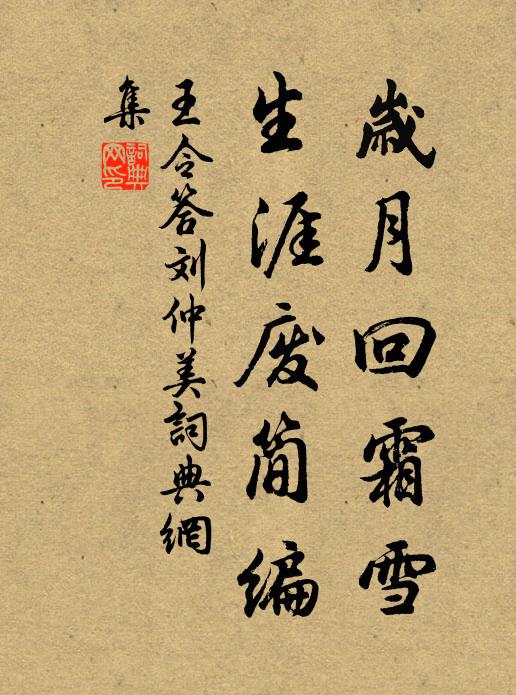 歲月回霜雪
生涯废简编
王令答刘仲美詞典網
集
詞典
网印